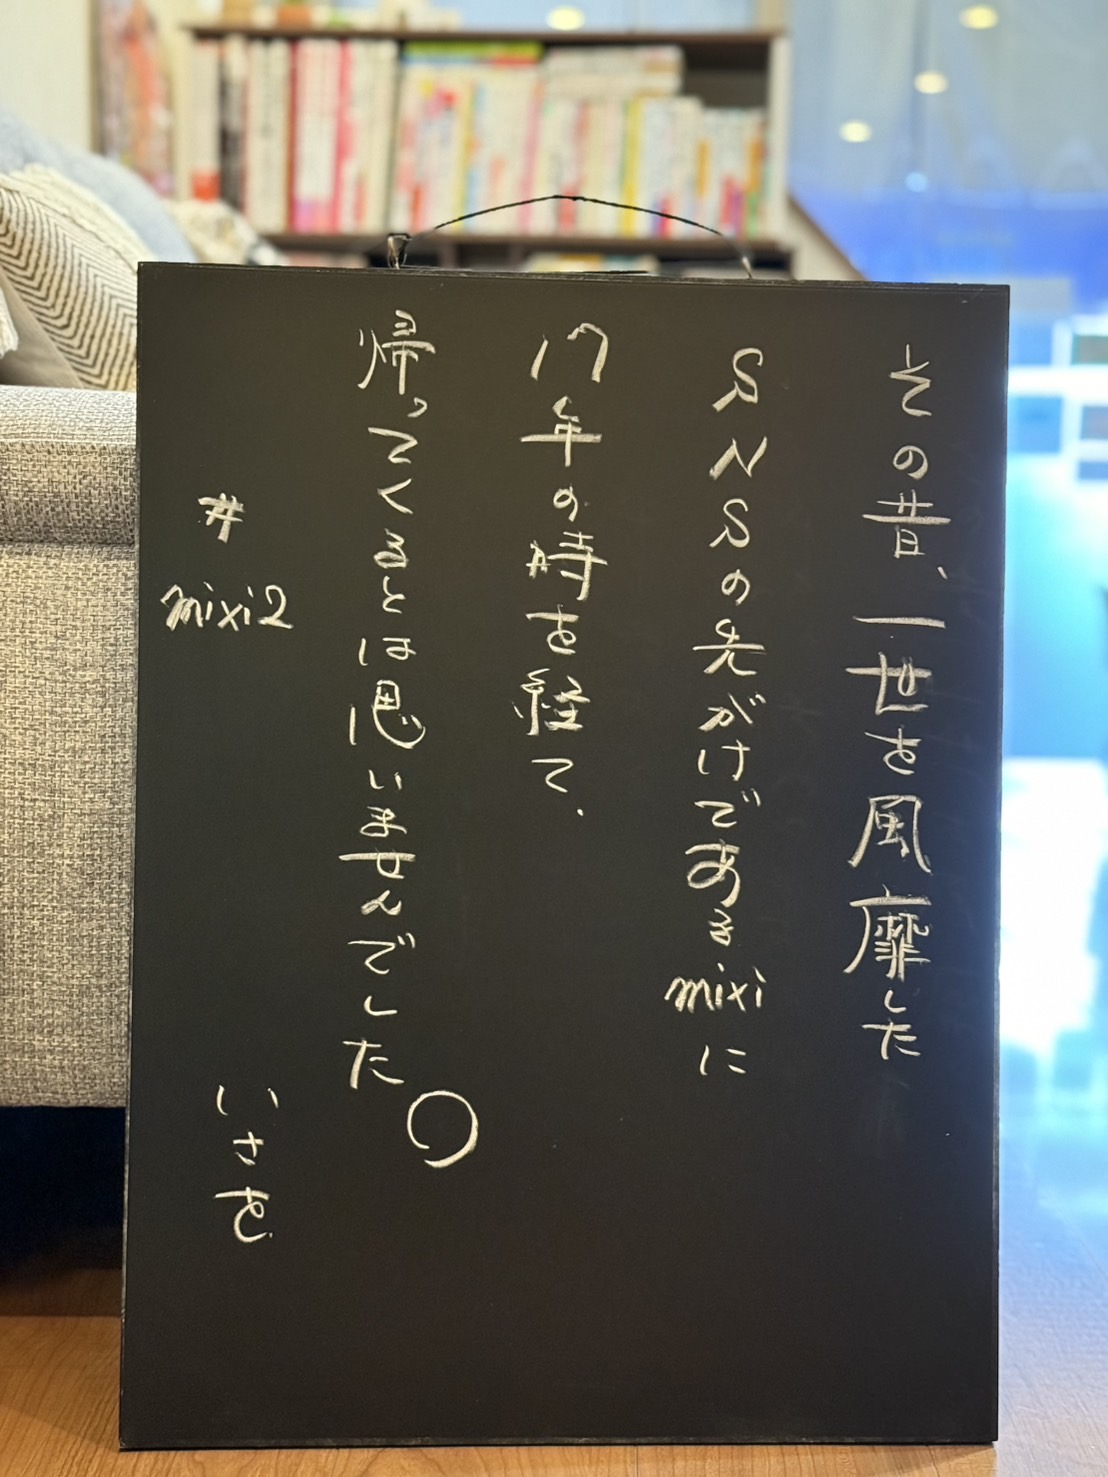 その昔、一世を風靡した
SNSの先がけであるmixiに
17年の時を経て、
帰ってくるとは思いませんでした。
#mixi2
いさを